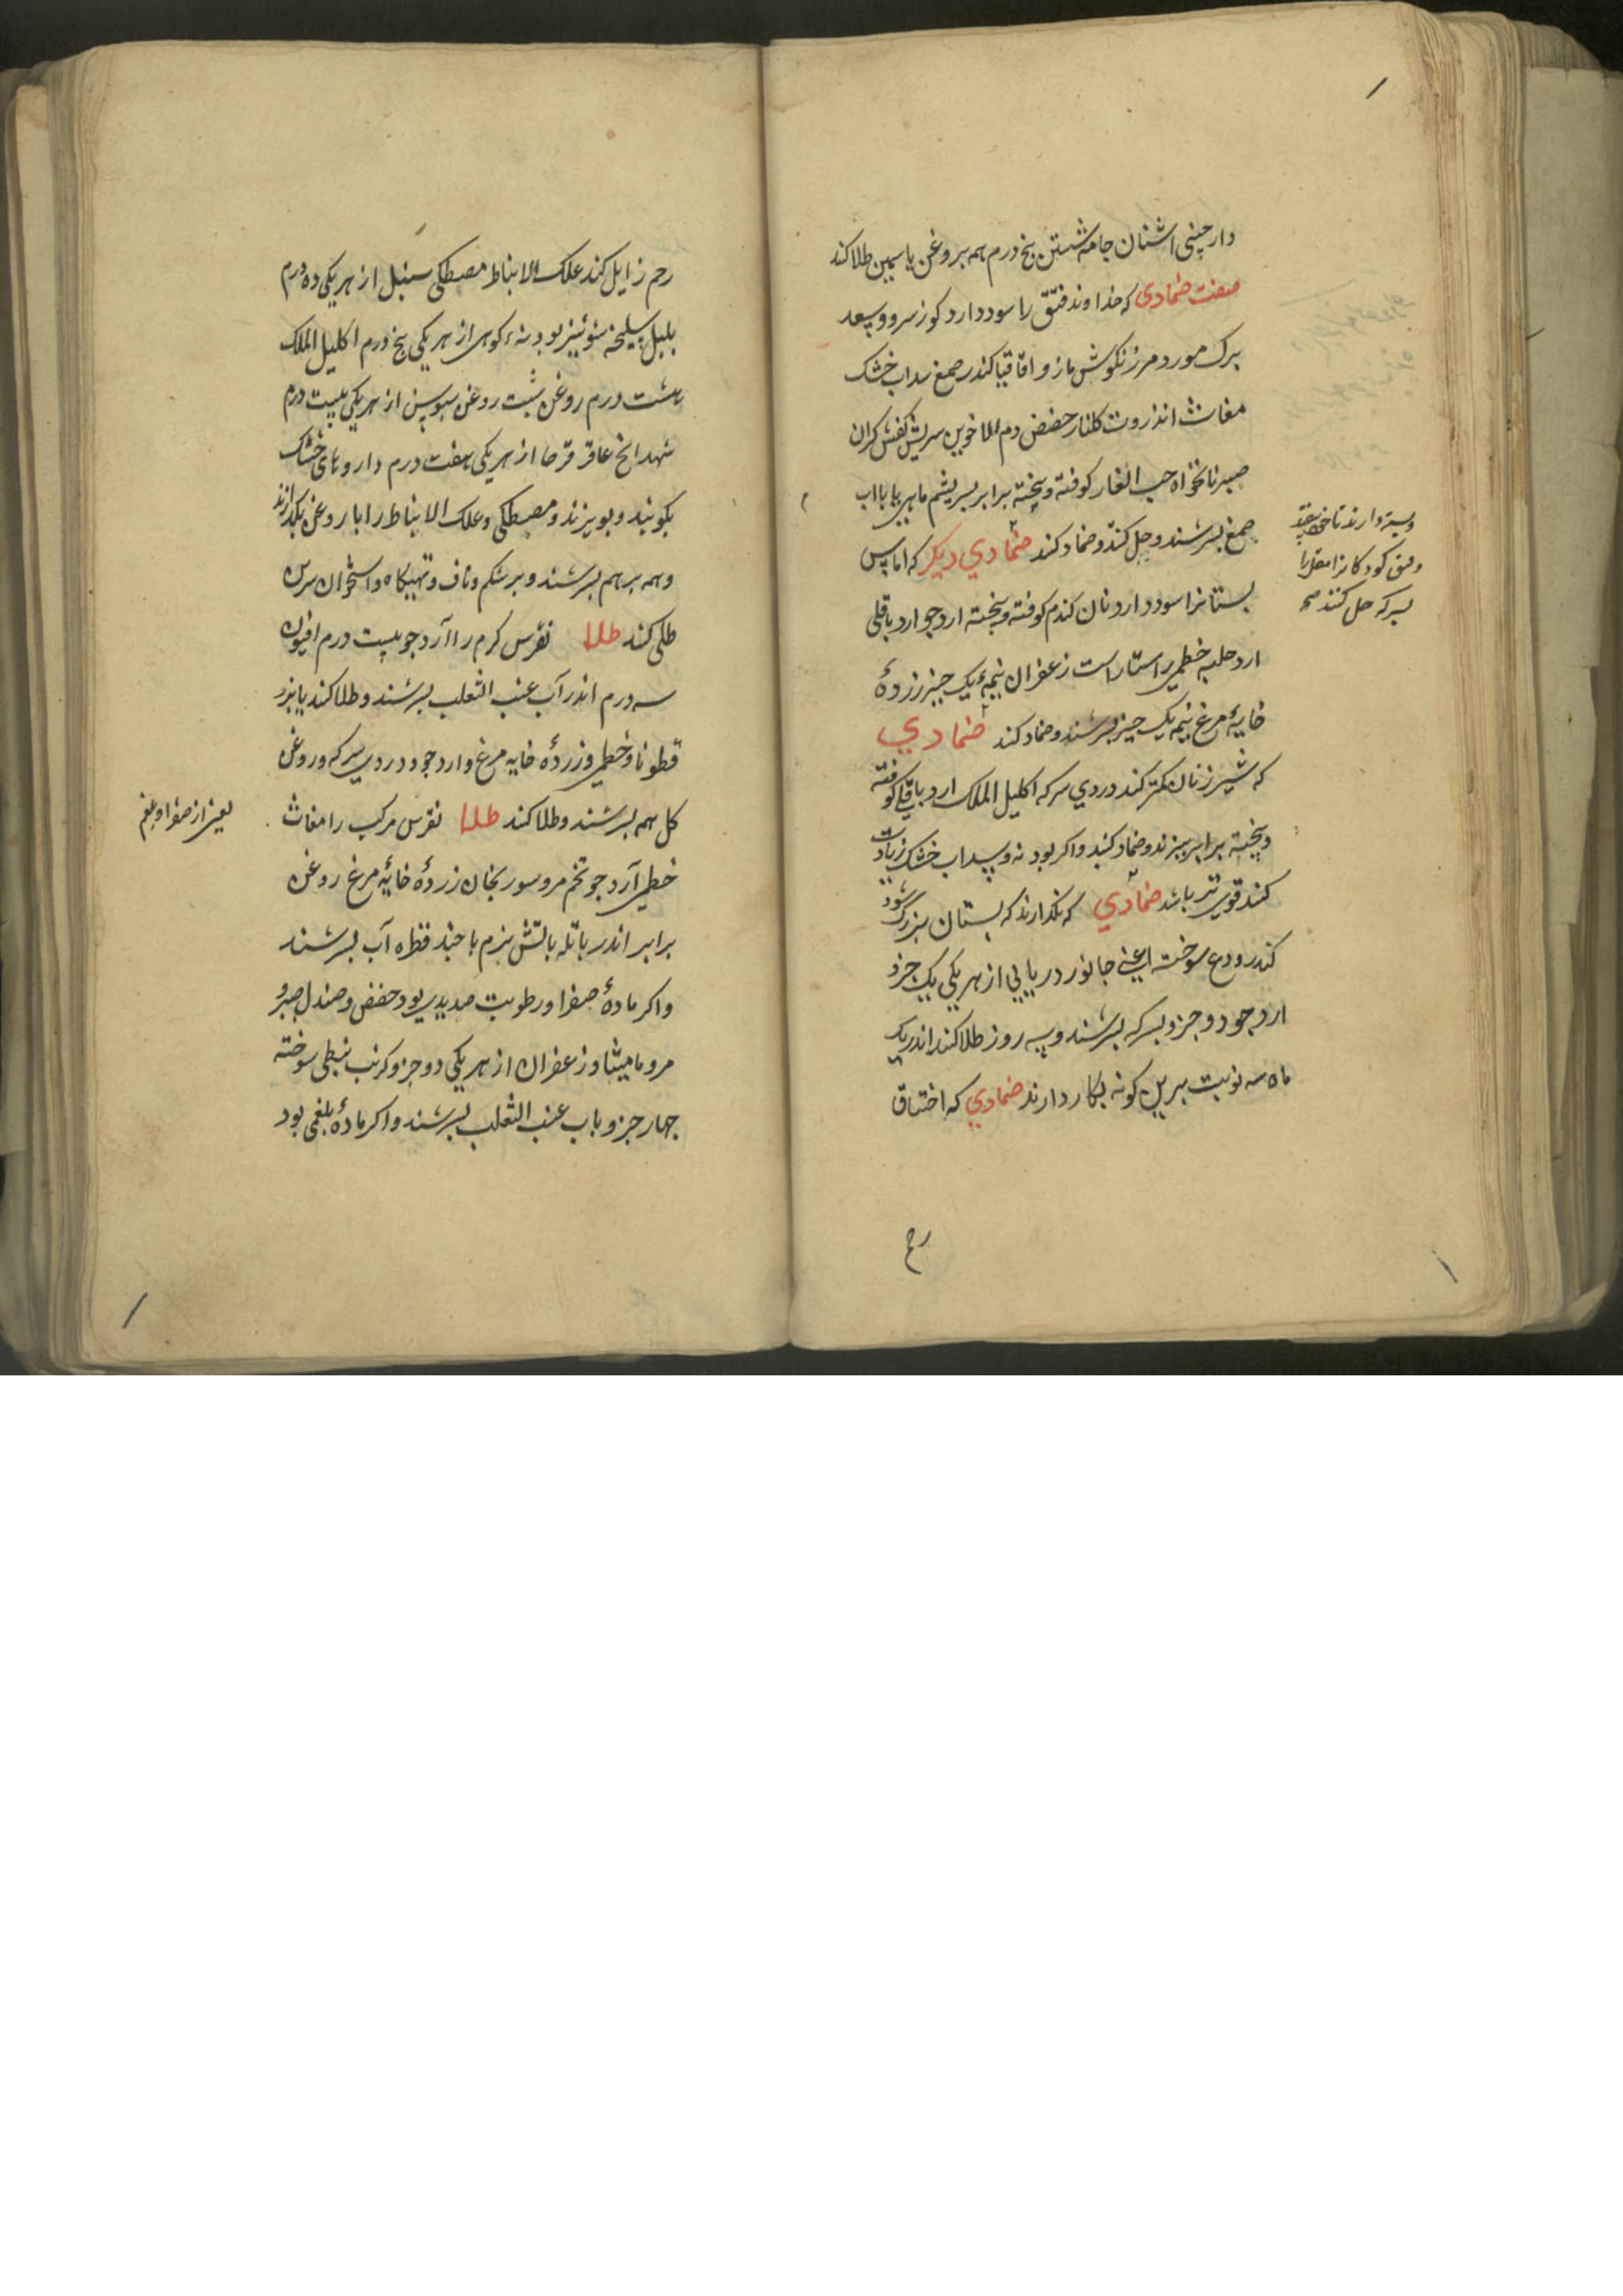 دارچینی اشنان جامه شستن پنج درم همه بروغن یاسمین طلا کند
صفت ضمادی که خداوند فتق را سود دارد کوز سرو و سعد
برک مورد مرزنکوش مازو اقاقیا کندر صمغ سداب خشک
مغاث انذروت کلنار حضض دم الاخوین سریش کفش کران
صبر نانخواه حب الغار کوفته و بیخته برابر بسریشم ماهی یا باب
صمغ بسرشند و حل کند و ضماد کند ضمادی دیکر که اماس
بستانرا سود دارد نان کندم کوفته و بیخته ارد جو ارد باقلی
ارد حلبه خطمی راستاراست زعفران نیمه یک چیز زردهٔ
خایهٔ مرغ نیمه یک چیز بسرشند و ضماد کند ضمادی
که شیر زنان کمتر کند دردی سرکه اکلیل الملک ارد باقلی کوفته
و بیخته برابر بپزند و ضماد کنند و اکر بودنه و سداب خشک زیادت
کنند قوی تر باشد ضمادی که نکذارند که بستان بزرک شود
کندر ودع سوخته اعنی جانور دریایی از هر یکی یک جزو
ارد جو دو جزو بسرکه بسرشند و سه روز طلا کند اندر یک
ماه سه نوبت برین کونه بکار دارند ضمادی که اختناق
وبسته دارند تا خود بیفتد
وفتق کودکانرا مقل را
بسرکه حل کنند صح
رح
رحم زایل کند علک الانباط مصطکی سنبل از هر یکی ده درم
بلبل سلیخه شونیز بودنهٔ کوهی از هر یکی پنج درم اکلیل الملک
هشت درم روغن شبت روغن سوسن از هر یکی بیست درم
شهدانج عاقرقرحا از هر یکی هفت درم داروهای خشک
بکوبند و ببیزند و مصطکی و علک الانباط را با روغن بکدازند
و همه بر هم بسرشند و بر شکم و ناف و تهیکاه و استخوان سرین
طلی کند طلا نقرس کرم را آرد جو بیست درم افیون
سه درم اندر آب عنب الثعلب بسرشند و طلا کند یا بزر
قطونا و خطمی و زردهٔ خایه مرغ و ارد جو و دردی سرکه و روغن
کل همه بسرشند و طلا کند طلا نقرس مرکب را مغاث
خطمی آرد جو تخم مرو سورنجان زردهٔ خایهٔ مرغ روغن
برابر اندر باتله بآتش نرم با چند قطره آب بسرشند
و اکر مادهٔ صفرا و رطوبت صدیدی بود حضض و صندل و صبر و
مر و مامیثا و زعفران از هر یکی دو جزو کرنب نبطی سوخته
چهار جزو باب عنب الثعلب بسرشند و اکر مادهٔ بلغمی بود
یعنی از صفرا و بلغم